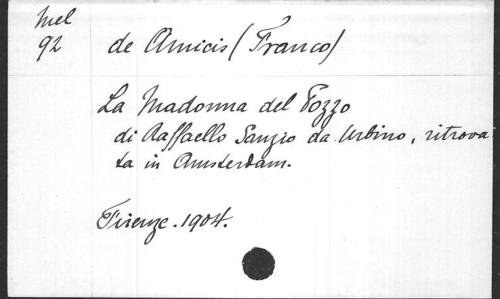 Mel
92
de Amicis (Franco)
La Madonna del Pozzo
di Raffaello Sanzio da Urbino, ritrova
ta in Amsterdam.
Firenze. 1904.